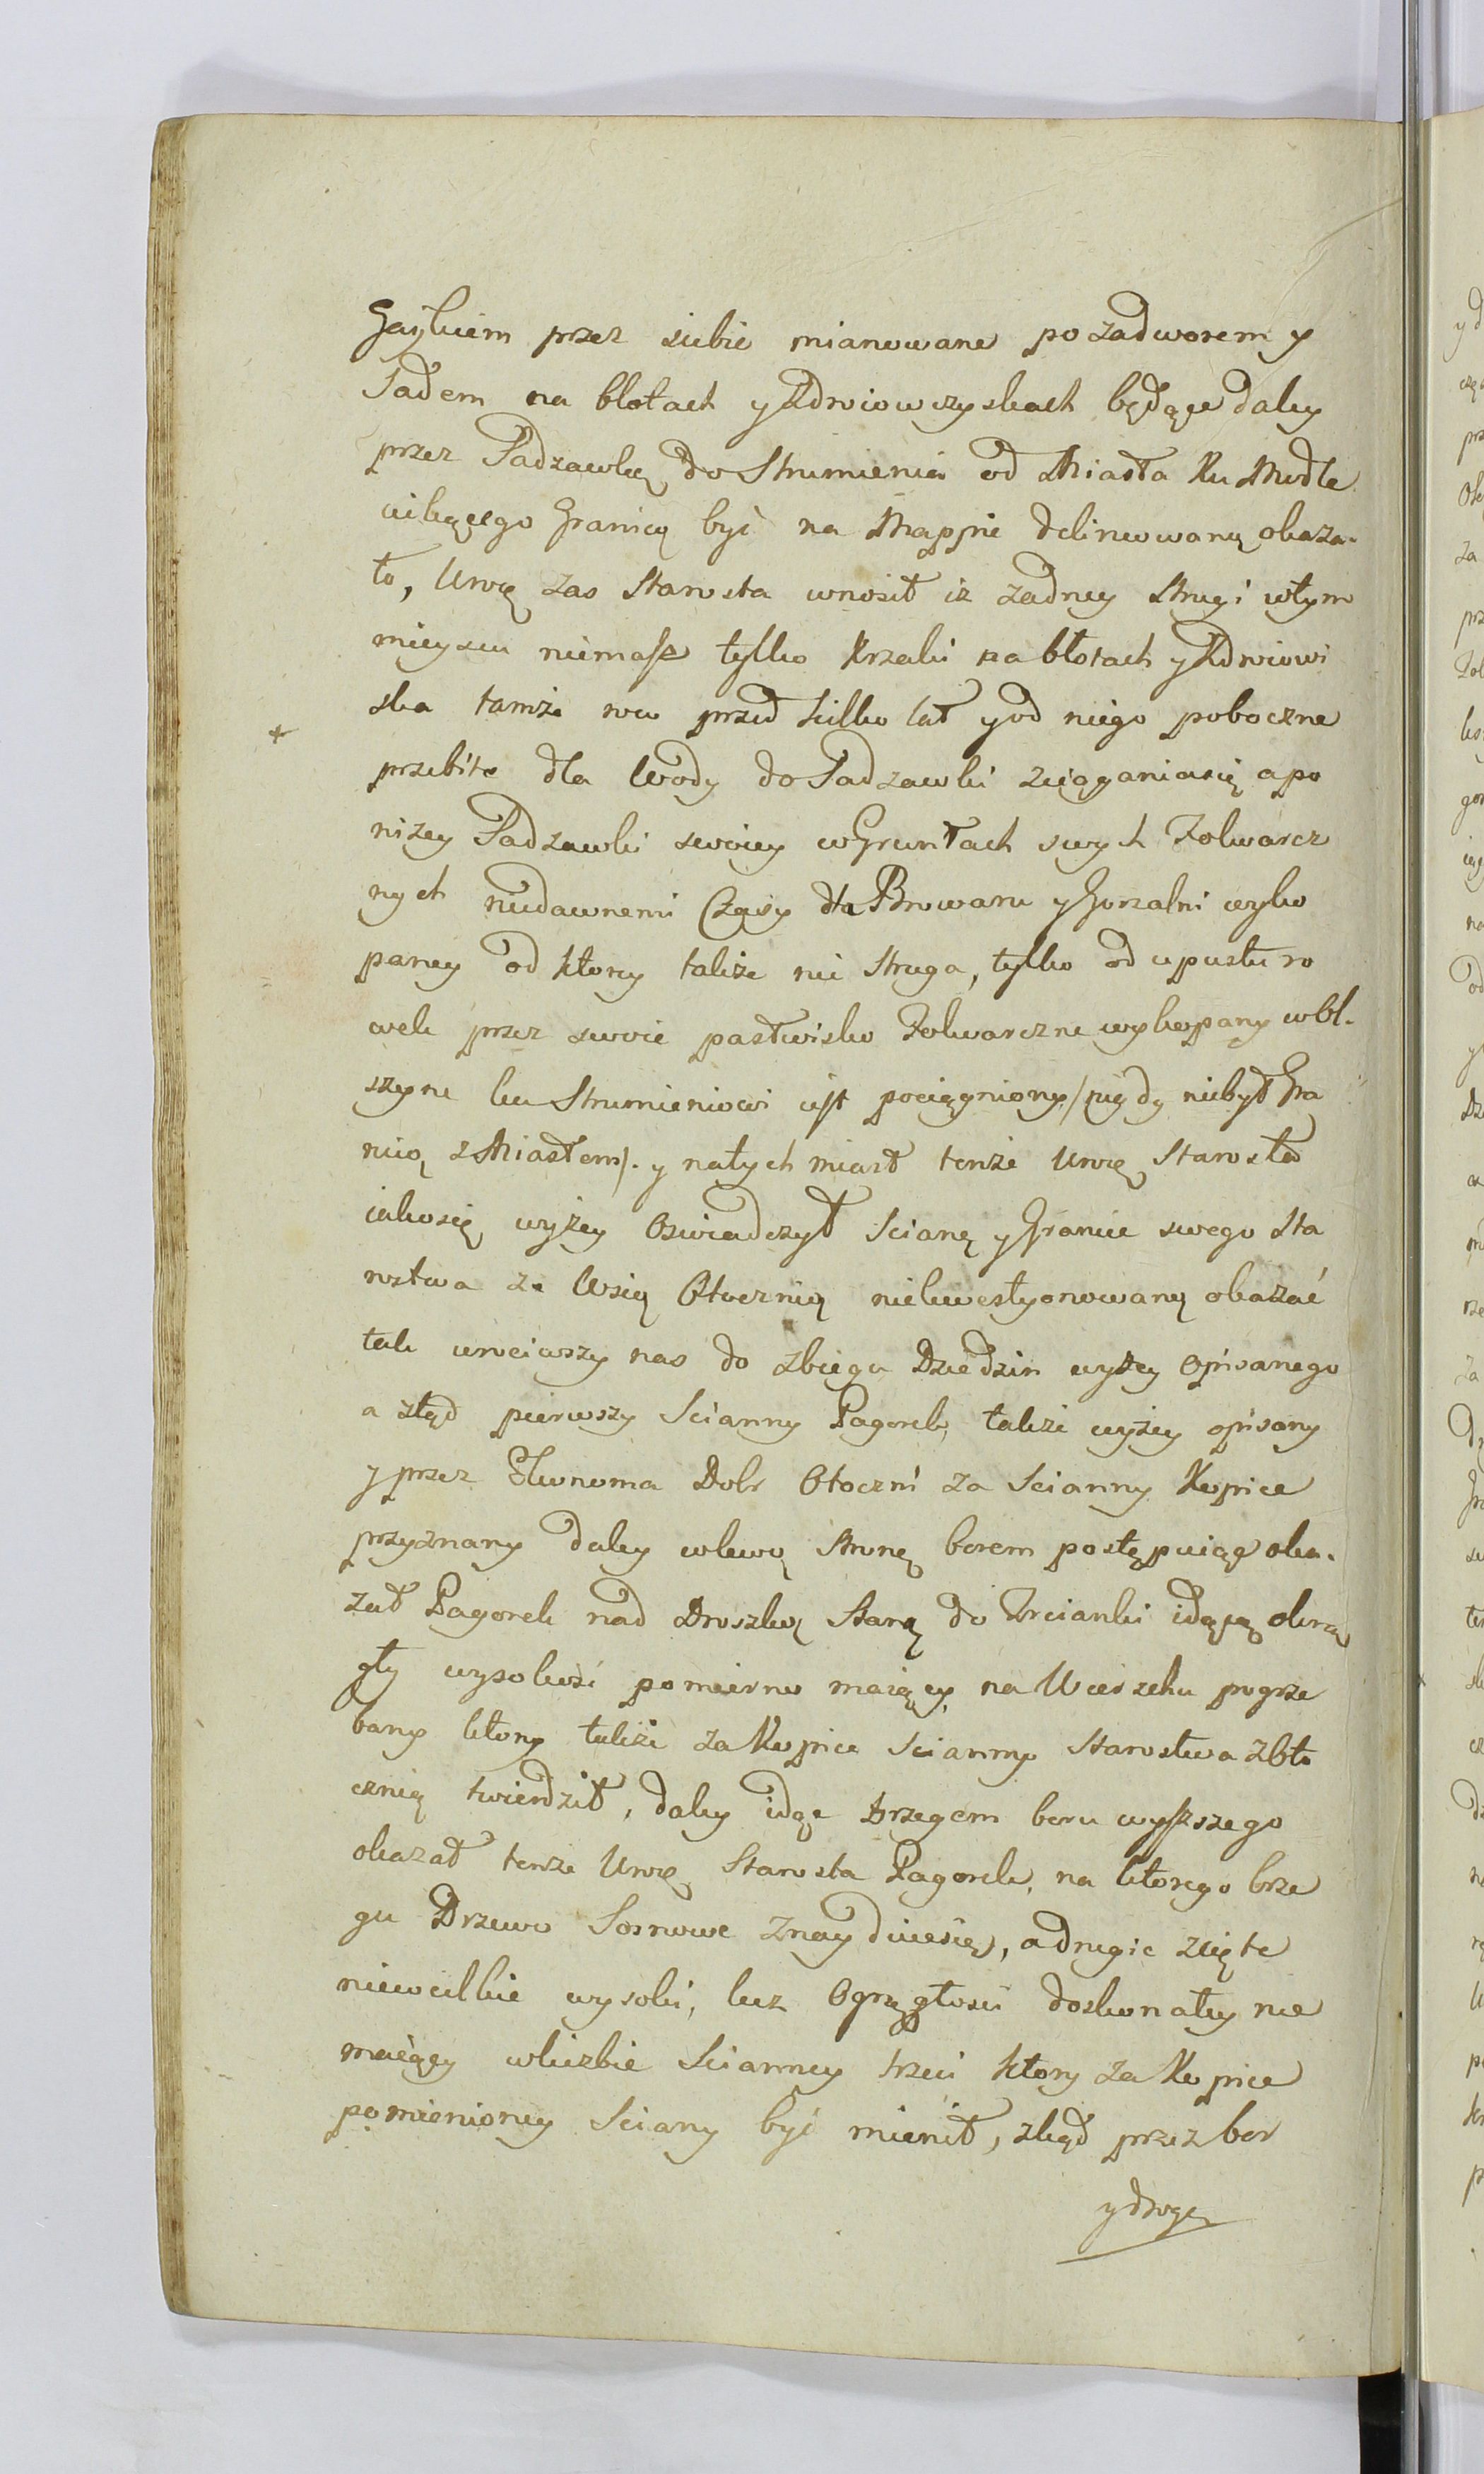 Gaykiem przez siebie mianowane po zadworem y
Sadem na błotach y Zdroiowczyskach będące daley
przez Sadzawkę do Strumienia od Miasta Ku Modle
ciekącego Granicą być na Mappie delineowaną okaza-
ło, Urodz. zas Starosta wnosił iz zadney Strugi wtym
mieyscu niemasz tylko Krzaki na błotach y Zdroiowi
ska tamże row przed kilko lat y od niego poboczne
przebite dla Wody do Sadzawki zciągania się a po
niżey Sadzawki swoiey w Gruntach swych Folwarcz
nych niedawnemi Czasy dla Browaru y Gorzalni wyko
paney od ktorey takze nie Struga, tylko od upustu ro
wek przez swoie pastwisko Folwarczne wykopany
szyne ku Strumieniowi jest pociągniony /nigdy niebył Gra
nicą z Miastem/. y natychmiast tenże Starosta
iakosię wyżey Oswiadczył Scianę y Granice swego Sta
rostwa ze Wsią Otocznią niekwestyonowaną okazać
tak wrociwszy nas do zbiegu Dziedzin wyżey Opisanego
a ztąd pierwszy Scianny Pagorek takze wyżey opisany
y przez Ekonoma Dobr Otoczni za Scianny Kopiec
przyznany daley wlewą stronę borem postępuiąc oka-
zał Pagorek nad Droszką Starą do Trcianki idącą okrą
gły wysokosci pomierno maiący na Wierzchu pogrze
bany ktory także za Kopiec Scianny Starostwa z Oto
cznią twierdził, daley idąc brzegem boru wyższego
okazał tenże Starosta Pagorek, na ktorego brze
gu Drzewo Sosnowe znayduiesię, a drugie zcięte
niewielkie wysoki, lecz Ogrągłosci doskonałey nie
maiący wliczbie Scianney trzeci ktory za Kopiec
pomienioney Sciany być mienił, ztąd przez bor
y drogę